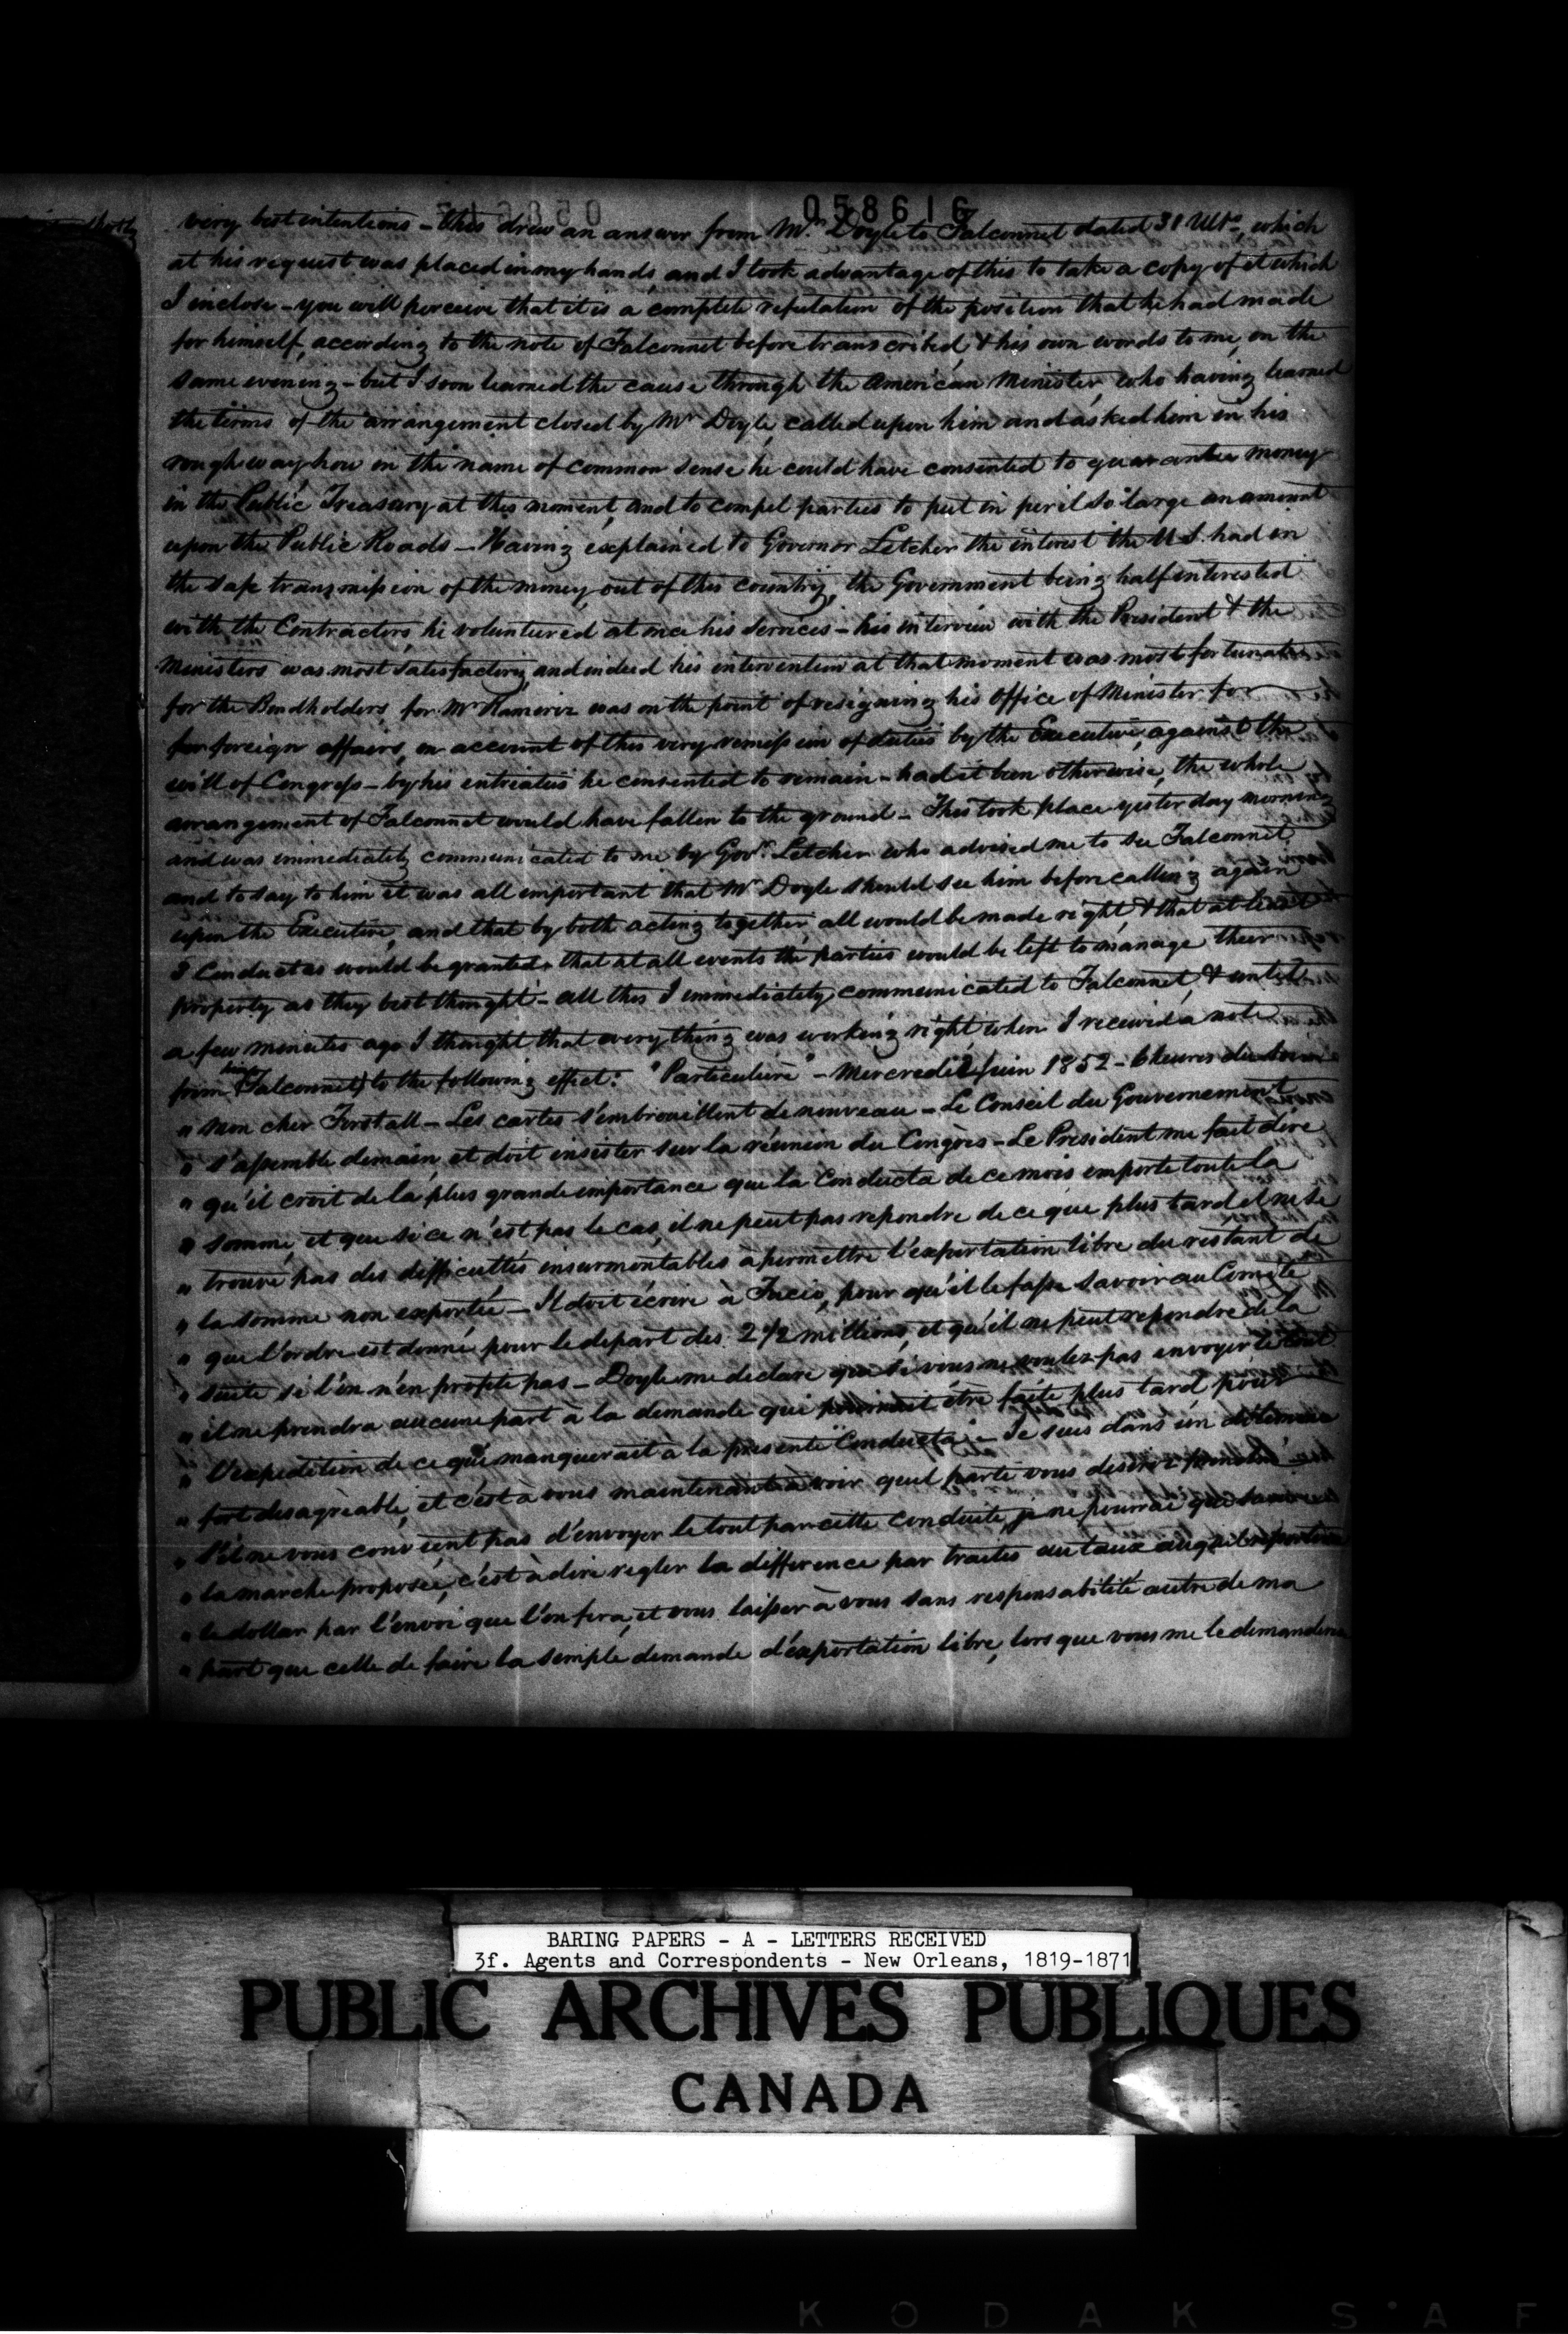 058616
very best intentions - this drew an answer from Mr. Doyle to Falconnet dated 31 Ulto, which
at his request was placed in my hands and I took advantage of this to take a copy of it which
I inclose - you will perceive that it is a complete refutation of the position that he had made
for himself, according to the note of Falconnet before transcribed, & his own words to me, on the
same evening - but I soon learned the cause through the American Minister, who having learned
the terms of the arrangement closed by Mr Doyle, called upon him and asked him in his
rough way, how in the name of common sense he could have consented to guarantee money
in the Public Treasury at this moment, and to compel parties to put in peril so large an amount
upon the Public Roads - Having explained to Governor Letcher the interest the U.S. had in
the safe transmission of the money, out of this country, the Government being half interested
with the Contractors, he volunteered at once his services - his interview with the President & the
Ministers was most satisfactory, and indeed his intervention at that moment was most fortunate
for the Bondholders, for Mr Ramirez was on the point of resigning his office of Minister for
for foreign affairs, on account of this very remission of duties by the Executive, against the
will of Congress - by his entreaties he consented to remain - had it been otherwise, the whole
arrangement of Falconnet would have fallen to the ground - This took place yesterday morning
and was immediately communicated to me by Govr. Letcher who advised me to see Falconnet
and to say to him it was all important that Mr Doyle should see him before calling again
upon the Executive, and that by both acting together, all would be made right, & that at least
2 Conductas would be granted, that at all events the parties would be left to manage their
property as they best thought - all this I immediately communicated to Falconnet, & until
a few minutes ago I thought that everything was working right, when I received a note
from him (Falconnet) to the following effect: "Particulière" - Mercredi 2 Juin 1852 - 6 heures du soir
" mon cher Forstall - Les cartes s'embrouillent de nouveau - Le Conseil du Gouvernement
" s'assemble demain, et doit insister sur la réunion du Congrès - Le President me fait dire
" qu'il croit de la plus grande importance que la Conducta de ce mois emporte toute la
" somme, et que si ce n'est pas le cas, il ne peut pas repondre de ce que plus tard il ne se
" trouve pas des difficultés insurmontables à permettre l'exportation libre du restant de
" la somme non exportée - Il doit écrire à Facio, pour qu'il le fasse savoir au Comité
" que l'ordre est donné pour le depart des 2 1/2 millions, et qu'il ne peut repondre de la
" suite si l'on n'en profite pas - Doyle me declare que si vous ne voulez pas envoyer le tout
" il ne prendra aucune part à la demande qui pourrait être faite plus tard pour
" l'expedition de ce qui manquerait à la presente Conducta - Je suis dans un dilemme
" fort desagréable, et c'est à vous maintenant à voir quel parti vous desirez prendre
" s'il ne vous convient pas d'envoyer le tout par cette conduite, je ne pourrai que suivre
" la marche proposée, c'est à dire regler la difference par traites au taux auquel
" le dollar par l'envoi que l'on fera, et vous laisser à vous sans responsabilité autre de ma
" part que celle de faire la simple demande d'exportation libre, lorsque vous me le demanderez
BARING PAPERS - A - LETTERS RECEIVED
3f. Agents and Correspondents - New Orleans, 1819-1871
PUBLIC ARCHIVES PUBLIQUES
CANADA
KODAK SAF